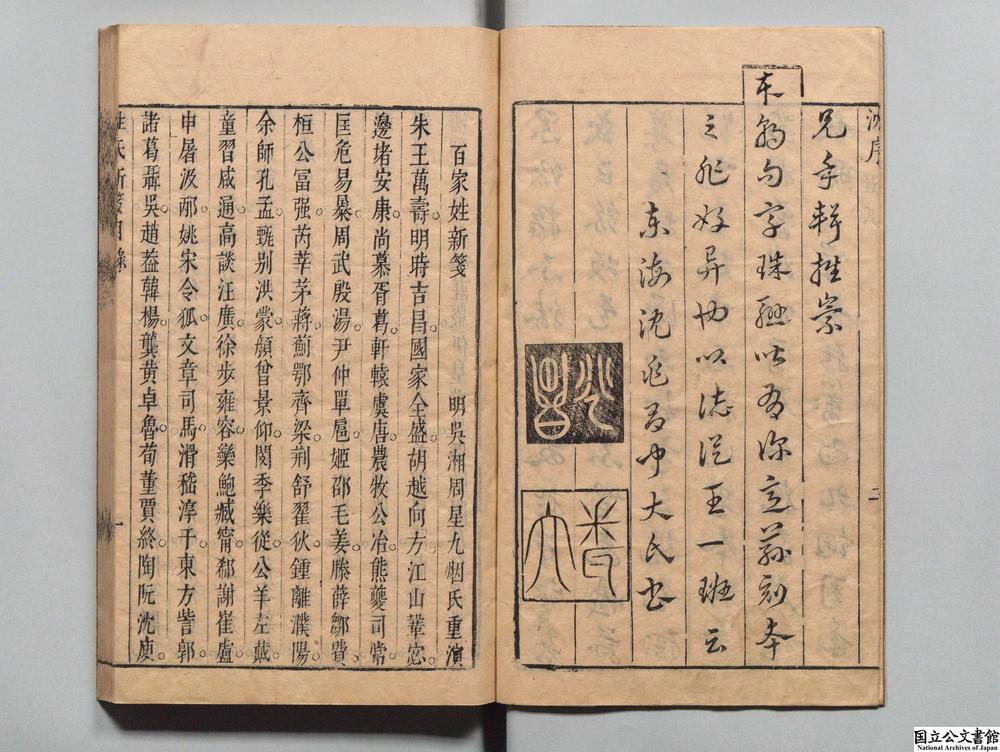 沈序
二
兄手輯推崇
本朝句字珠璣皆有深意蓀刻本
之非好異也以誌從王一班云
東海沈兆昌中大氏書
兆昌
百家姓新箋 明吳湘周星九烟氏重演
朱王萬壽。明時吉昌。國家全盛。胡越向方。江山鞏宓。
邊堵安康。尚慕胥葛。軒轅虞唐。農牧公冶。熊夔司常。
匡危易暴。周武殷湯。尹仲單扈。姬邵毛姜。滕薛鄒費。
桓公富强。芮莘茅蔣。薊鄂齊梁。荆舒翟狄。鍾離濮陽。
余師孔孟。甄别洪蒙。顏曾景仰。閔季樂從。公羊左戴。
童習咸通。高談汪廣。徐步雍容。欒鮑臧甯。郗謝崔盧。
申屠汲邴。姚宋令狐。文章司馬。滑稽淳于。東方訾郭。
諸葛聶吳。趙葢韓楊。龔黄卓魯。荀董賈終。陶阮沈庾。
姓氏新箋目錄
一
国立公文書館
National Archives of Japan